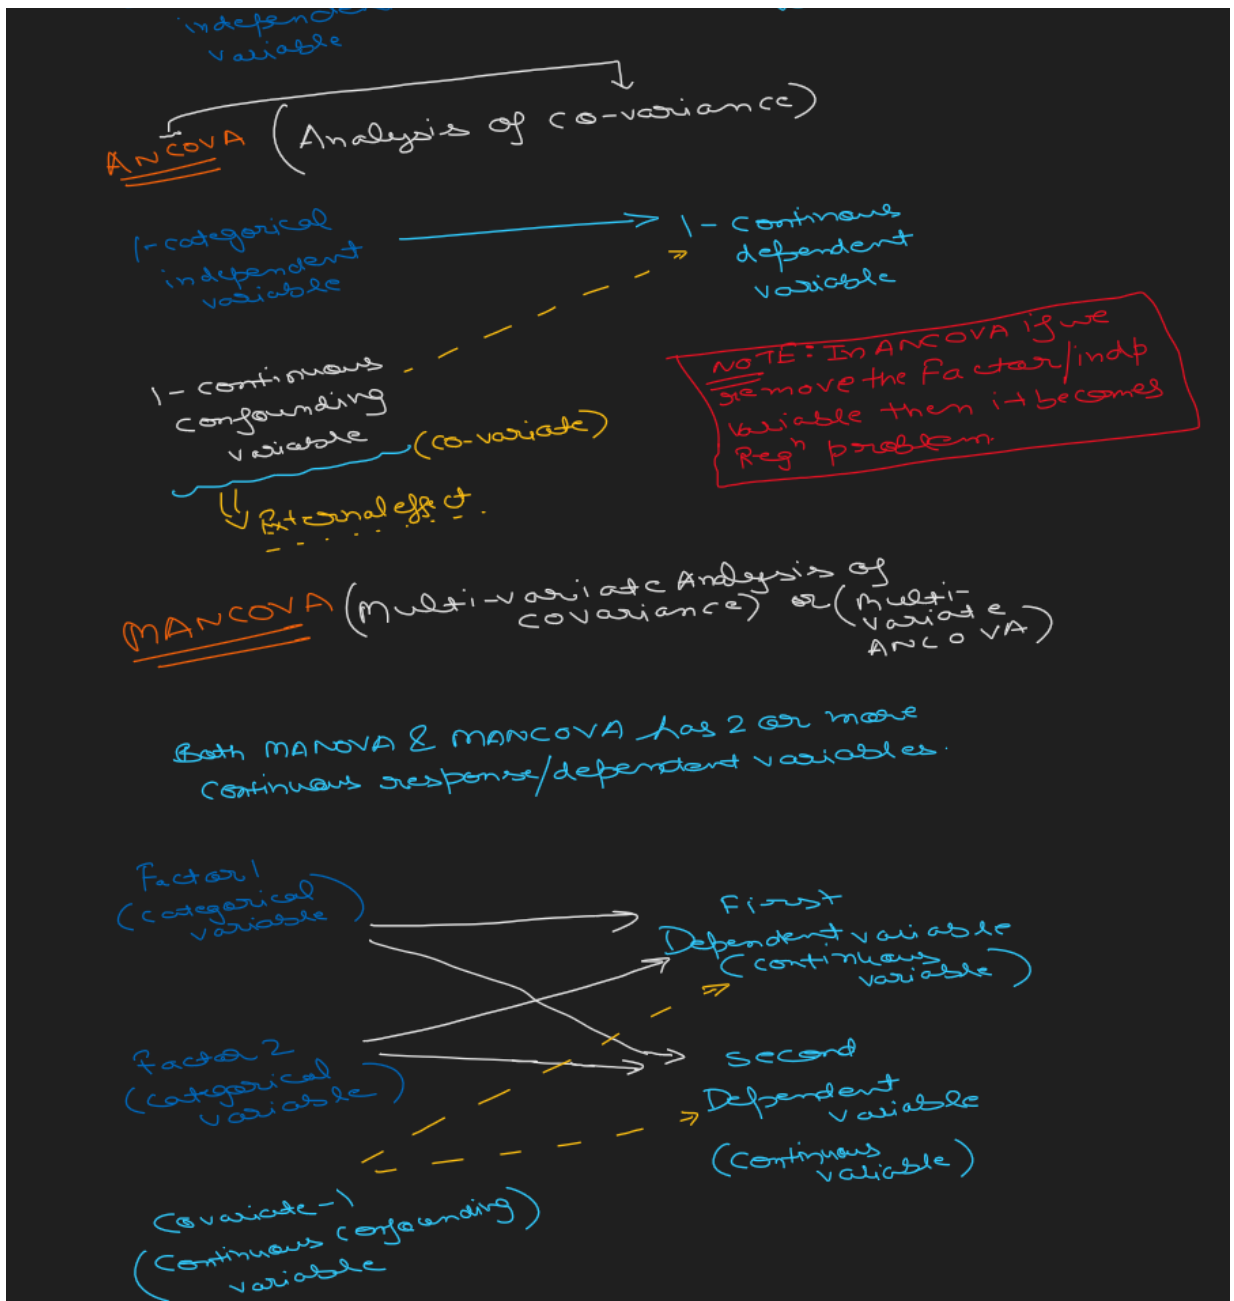 independent
variable
ANCOVA (Analysis of co-variance)
1-categorical
independent
variable
1- Continous
dependent
variable
1- continuous
confounding
variable
(co-variate)
External effect
NOTE: In ANCOVA if we
remove the Factor/indp
variable then it becomes
Regn problem.
MANCOVA (Multi-variate Analysis of
covariance) or (Multi-
variate
ANCOVA)
Both MANOVA & MANCOVA has 2 or more
continuous response/dependent variables.
Factor 1
(categorical
variable)
First
Dependent variable
(continuous
variable)
Factor 2
(categorical
variable)
Second
Dependent
variable
(continuous
variable)
Covariate-1
(Continuous confounding)
variable